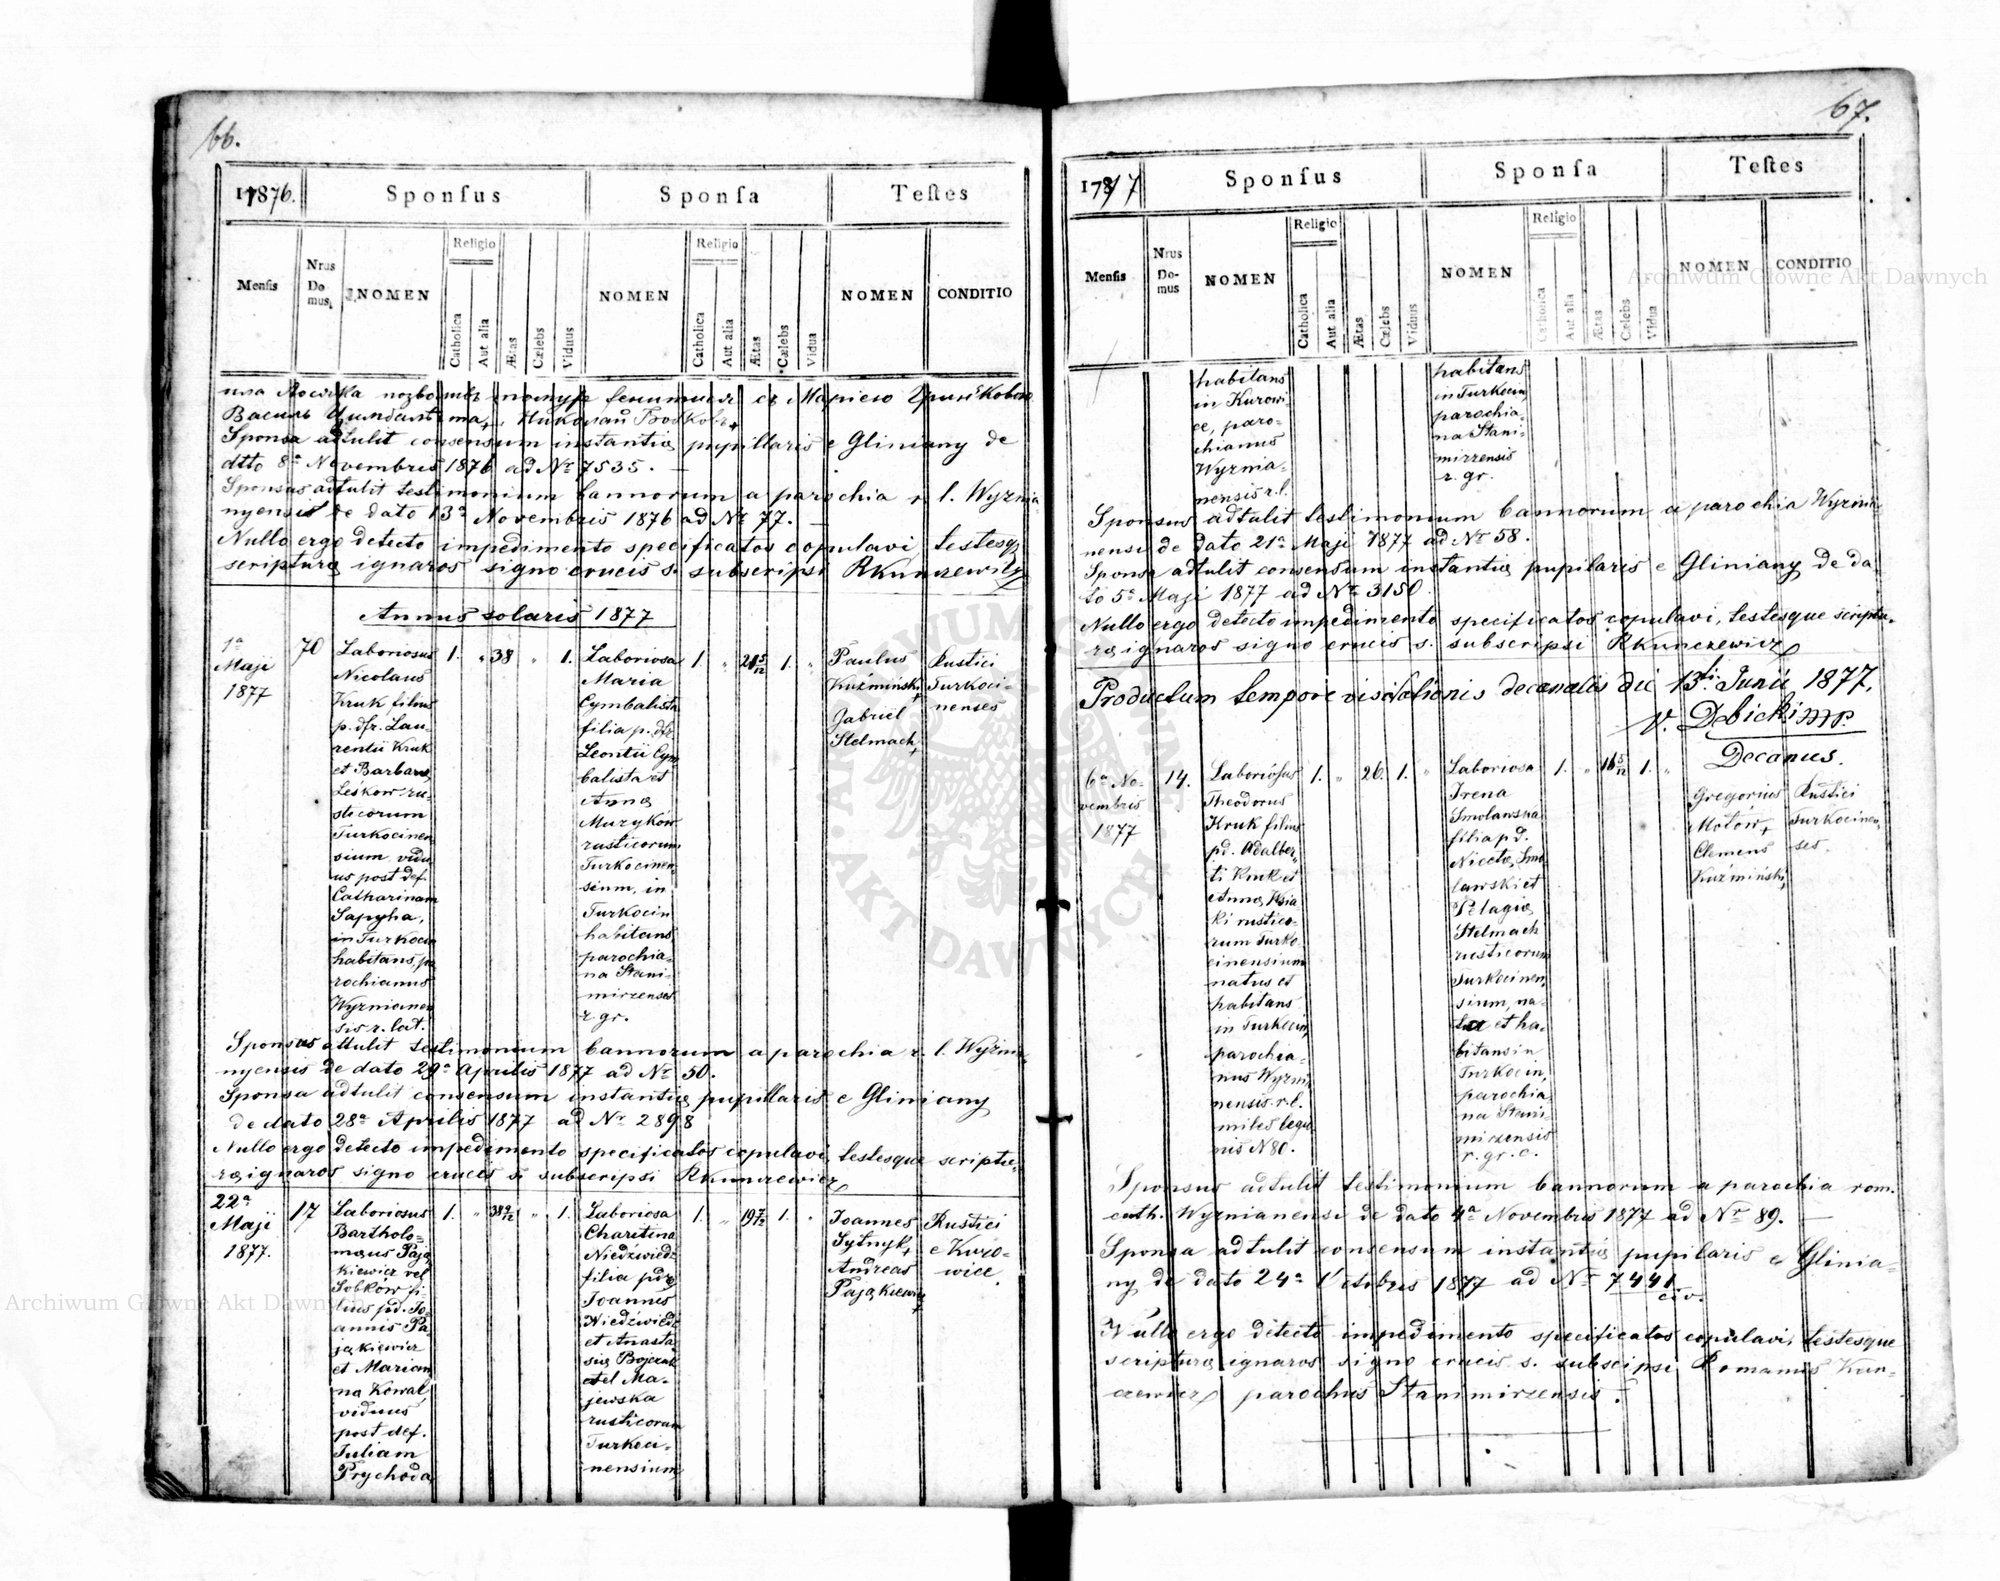 66.
1876.
Sponſus
Sponſa
Teſtes
Menſis
Nrus Domus
NOMEN
Religio
Catholica
Aut alia
Ætas
Cælebs
Viduus
NOMEN
Religio
Catholica
Aut alia
Ætas
Cælebs
Vidua
NOMEN
CONDITIO
Sponsa adtulit consensum instantiæ pupillaris e Gliniany de
dtto 8ª Novembris 1876 ad Nr 7535. —
Sponsus adtulit testimonium bannorum a parochia r. l. Wyznia
nyensis de dato 13ª Novembris 1876 ad Nr 77. —
Nullo ergo detecto impedimento specificatos copulavi testesq
scripturæ ignaros signo crucis s. subscripsi RKunczewicz
Annus solaris 1877
1ª
Maji
1877
70
Laboriosus
Nicolaus
Kruk filius
p. dfr. Lau-
rentii Kruk
et Barbaræ
Leśkow ru-
sticorum
Turkocinen
sium, vidu
us post def.
Catharinam
Sapyha,
in Turkocin
habitans, pa
rochianus
Wyznianen
sis r. lat.
1. " 38 " 1.
Laboriosa
Maria
Cymbalista
filia p. dfr.
Leontii Cym
balista et
Annæ
Muzyków
rusticorum
Turkocinen
sium, in
Turkocin
habitans
parochia-
na Stani-
mirzensis
r. gr.
1. " 21 5/12 1. "
Paulus
Kuźmiński +
Gabriel
Stelmach +
Rustici
Turkoci-
nenses
Sponsus attulit testimonium bannorum a parochia r. l. Wyznia
nyensis de dato 29ª Aprilis 1877 ad Nr 50.
Sponsa adtulit consensum instantiæ pupillaris e Gliniany
de dato 28ª Aprilis 1877 ad Nr 2898
Nullo ergo detecto impedimento specificatos copulavi, testesque scriptu-
ræ ignaros signo crucis s. subscripsi RKunczewicz
22ª
Maji
1877.
17
Laboriosus
Bartholo-
mæus Pają
kiewicz vel
Sobków fi-
lius pd. Jo-
annis Pa
jąkiewicz
et Marian
na Kowal
viduus
post def.
Juliam
Prychoda
1. " 38 9/12 " 1.
Laboriosa
Charitina
Niedźwiedź
filia pdfr
Joannis
Niedźwiedź
et Anasta
siæ Bojczuk
vel Ma-
jewska
rusticorum
Turkoci-
nensium
1. " 19 7/12 1. "
Joannes
Sytnyk +
Andreas
Pająkiewicz +
Rustici
e Kuro-
wice.
67.
1877
Sponſus
Sponſa
Teſtes
Menſis
Nrus Domus
NOMEN
Religio
Catholica
Aut alia
Ætas
Cælebs
Viduus
NOMEN
Religio
Catholica
Aut alia
Ætas
Cælebs
Vidua
NOMEN
CONDITIO
habitans
in Kurowi-
ce, paro-
chianus
Wyznia-
nensis r. l.
habitans
in Turkocin
parochia-
na Stani-
mirzensis
r. gr.
Sponsus adtulit testimonium bannorum a parochia Wyznia
nensi de dato 21ª Maji 1877 ad Nr 58.
Sponsa adtulit consensum instantiæ pupilaris e Gliniany de da
to 5ª Maji 1877 ad Nr 3150.
Nullo ergo detecto impedimento specificatos copulavi, testesque scriptu-
ræ ignaros signo crucis s. subscripsi RKunczewicz
Productum tempore visitationis decanalis die 13ti Junii 1877.
V. Debicki mp.
Decanus.
6ª No-
vembris
1877
14.
Laboriosus
Theodorus
Kruk filius
pd. Adalber-
ti Kruk et
Annæ Ksią
ki rustico-
rum Turko-
cinensium
natus et
habitans
in Turkocin,
parochia-
nus Wyznia
nensis r. l.
miles legio
nis N 80.
1. " 26. 1. "
Laboriosa
Irena
Smolanska
filia pd.
Nicetæ Smo
lanski et
Pelagiæ
Stelmach
rusticorum
Turkocinen
sium, na-
ta et ha-
bitans in
Turkocin,
parochia
na Stani
mirzensis
r. gr. c.
1. " 16 5/12 1. "
Gregorius
Motów +
Clemens
Kuźmiński +
Rustici
Turkocinen-
ses.
Sponsus adtulit testimonium bannorum a parochia rom.
cath. Wyznianensi de dato 4ª Novembris 1877 ad Nr 89. —
Sponsa adtulit consensum instantiæ pupilaris e Glinia-
ny de dato 24ª Octobris 1877 ad Nr 7441
civ.
Nullo ergo detecto impedimento specificatos copulavi, testesque
scripturæ ignaros signo crucis s. subscipsi Romanus Kun-
czewicz parochus Stanimirzensis.
Archiwum Główne Akt Dawnych
Archiwum Główne Akt Dawnych